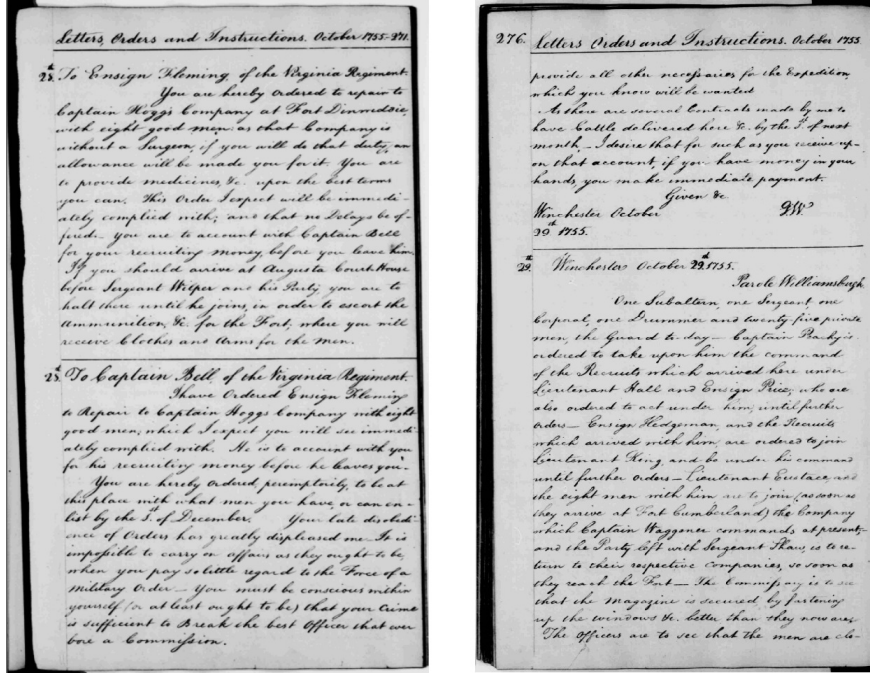 Letters, Orders and Instructions. October 1755. 271.
28th To Ensign Fleming, of the Virginia Regiment.
You are hereby ordered to repair to
Captain Hoggs Company at Fort Dinwiddie,
with eight good men: as that Company is
without a Surgeon, if you will do that duty, an
allowance will be made you for it. You are
to provide medicines, &c. upon the best terms
you can. This Order I expect will be immedi-
ately complied with; and that no Delays be of-
fered. You are to account with Captain Bell
for your recruiting money, before you leave him.
If you should arrive at Augusta Court House
before Sergeant Wilper and his Party, you are to
halt there until he joins, in order to escort the
Ammunition, &c. for the Fort; where you will
receive Clothes and Arms for the men.
28th To Captain Bell, of the Virginia Regiment.
I have Ordered Ensign Fleming
to Repair to Captain Hoggs Company with eight
good men; which I expect you will see immedi-
ately complied with. He is to account with you
for his recruiting money before he leaves you.
You are hereby Ordered, peremptorily, to be at
this place with what men you have, or can en-
list by the 1st of December. Your late disobedi-
ence of Orders has greatly displeased me. It is
impossible to carry on affairs as they ought to be,
when you pay so little regard to the Force of a
Military Order. You must be conscious within
yourself (or at least ought to be) that your Crime
is sufficient to Break the best Officer that ever
bore a Commission.
276. Letters Orders and Instructions. October 1755
provide all other necessaries for the Expedition,
which you know will be wanted
As there are several Contracts made by me to
have Cattle delivered here &c. by the 1st of next
month, I desire that for such as you receive up-
on that account, if you have money in your
hands, you make immediate payment.
Given &c
Winchester October GW
29th 1755.
29th Winchester October 29th 1755.
Parole Williamsburgh
One Subaltern, one Sergeant one
Corporal, one Drummer and twenty-five private
men, the Guard to-day — Captain Peachy is
ordered to take upon him the command
of the Recruits which arrived here under
Lieutenant Hall and Ensign Price; who are
also ordered to act under him, until further
orders — Ensign Hedgeman, and the Recruits
which arrived with him, are ordered to join
Lieutenant King, and be under his command
until further orders — Lieutenant Eustace, and
the eight men with him are to join (as soon as
they arrive at Fort Cumberland) the Company
which Captain Waggener commands at present;
and the Party left with Sergeant Shaw, is to re-
turn to their respective companies, so soon as
they reach the Fort — The Commissary is to see
that the Magazine is secured by fastening
up the windows &c. better than they now are.
The Officers are to see that the men are clo-